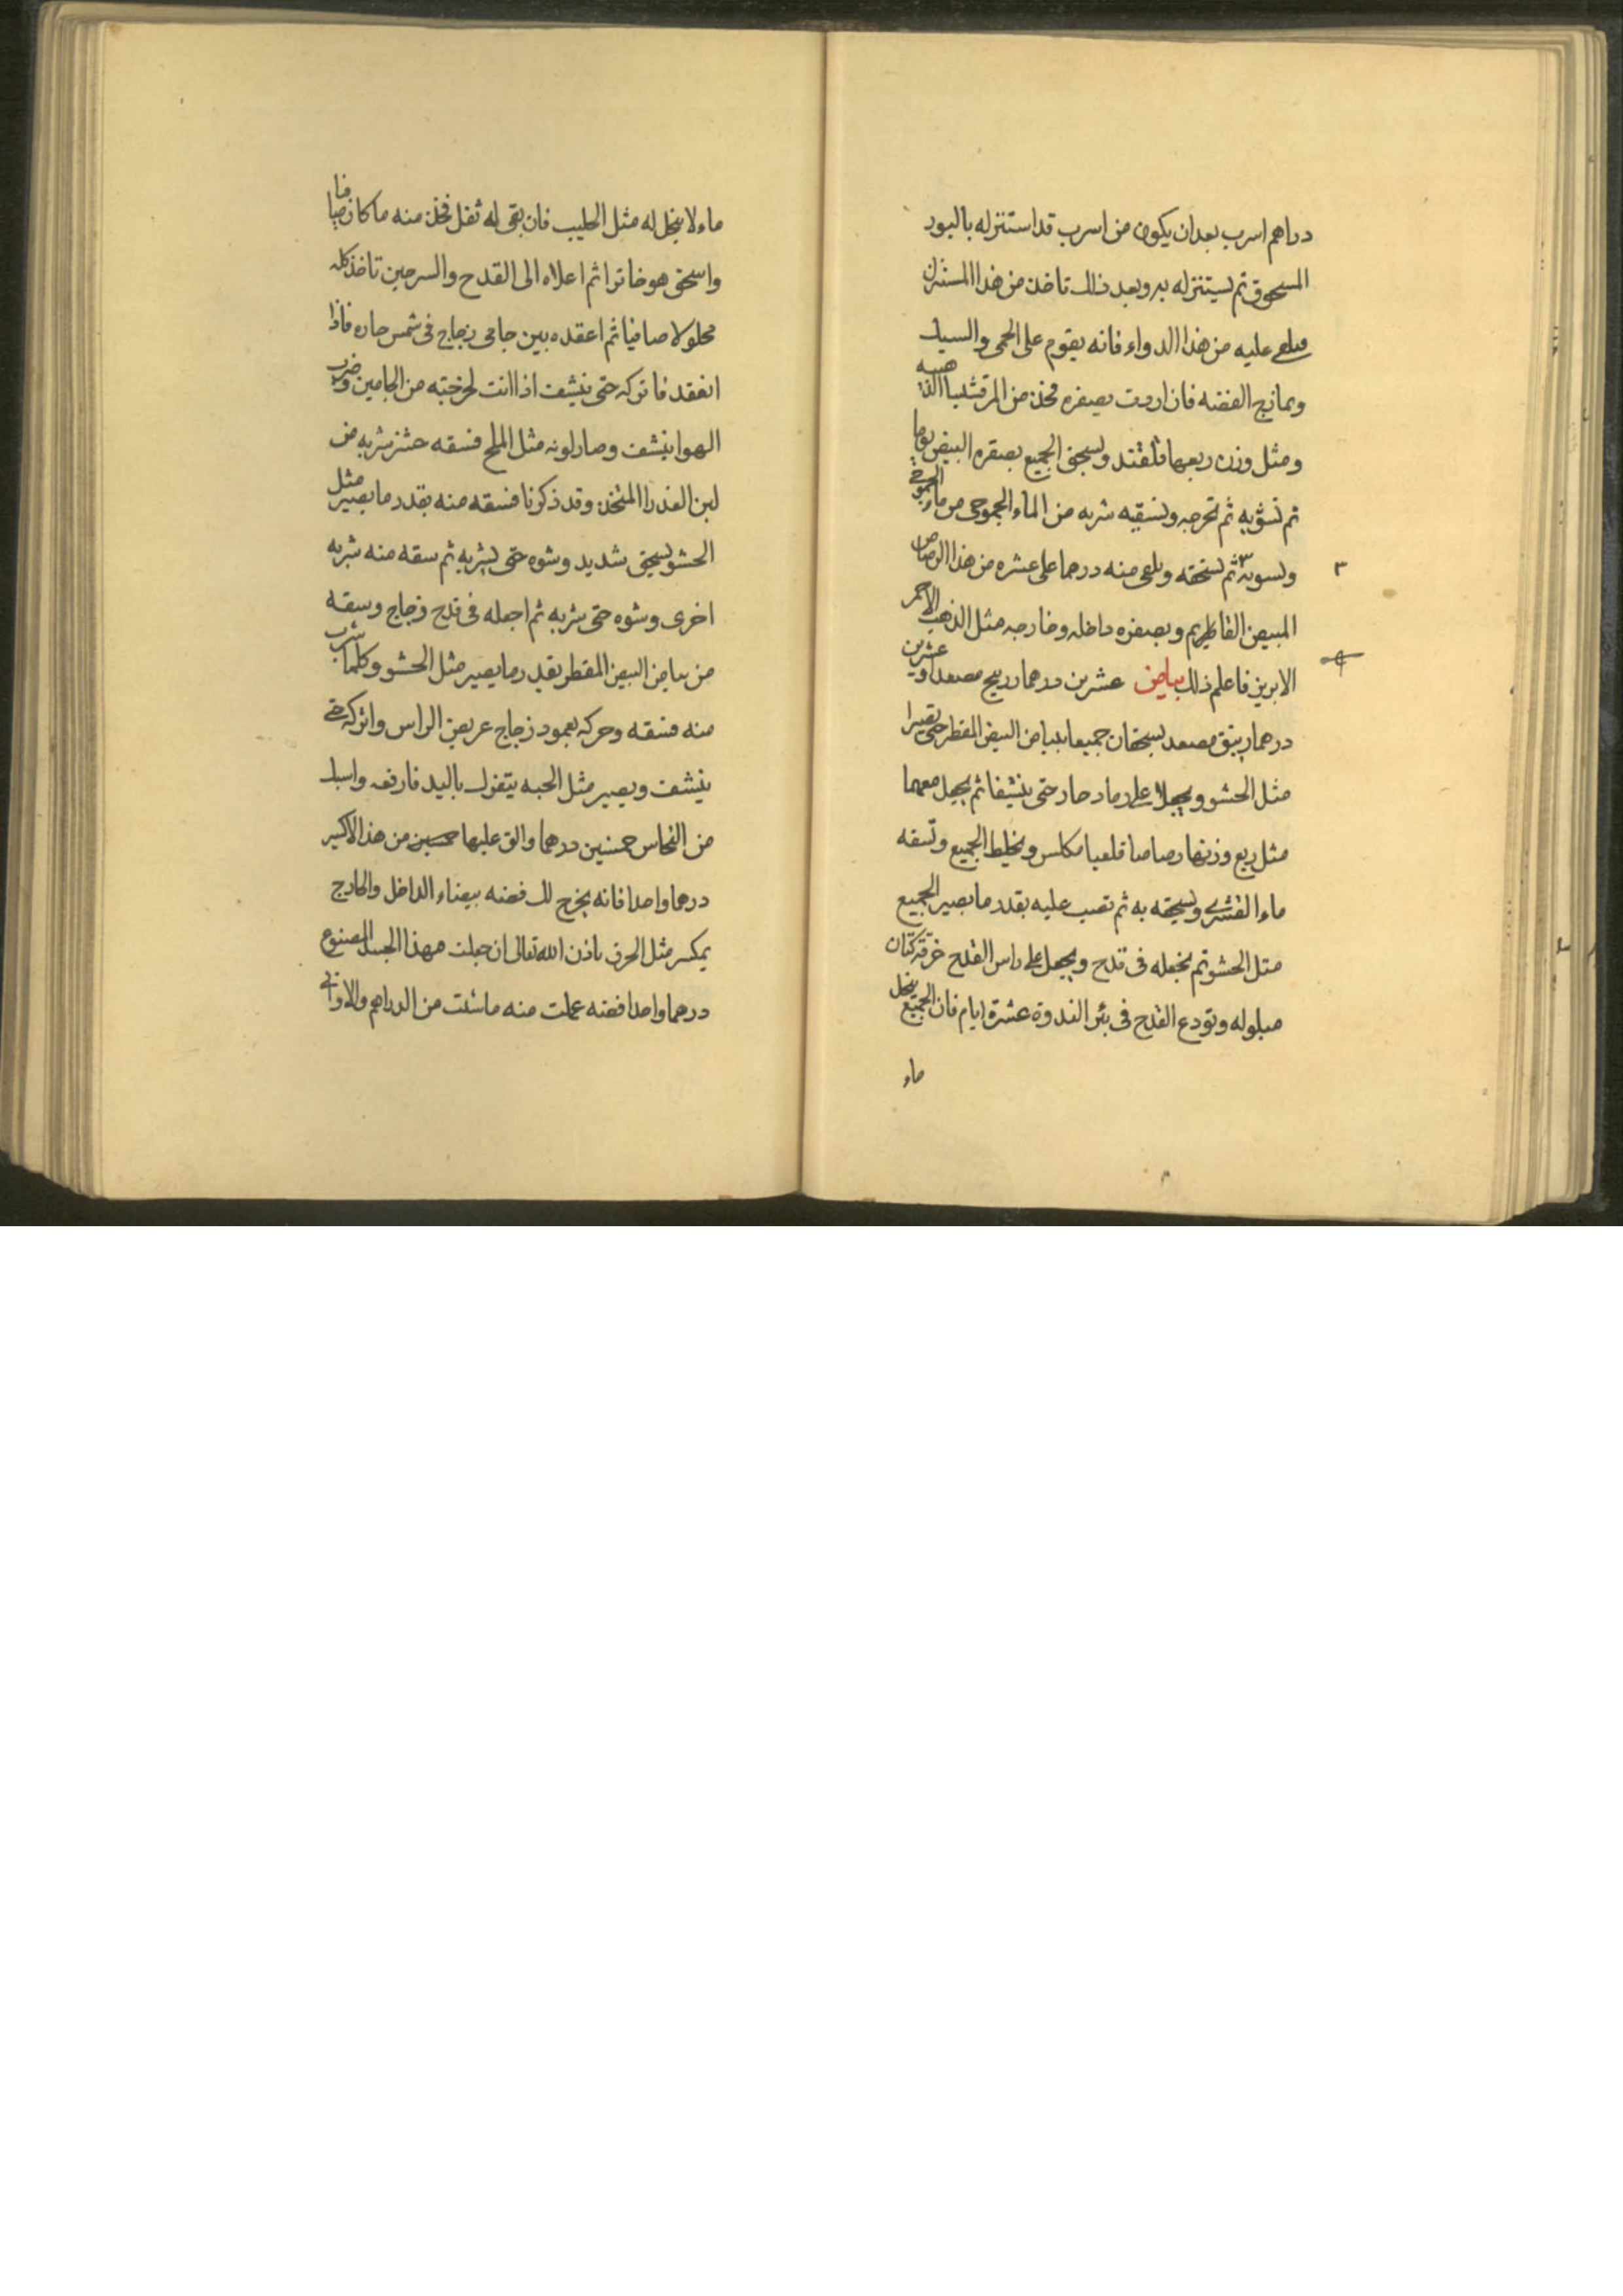 دراهم اسرب بعد ان يكون من اسرب قد استنزله بالبود
المسحوق ثم يستنزله به وبعد ذلك تاخذ من هذا المستنزل
عليه من هذا الدواء فانه يقوم على الحمى والسبك
ويمازج الفضه فان اردت بصفره فخذ من المرقشيثا الذهبيه
ومثل وزن ربعها قلقند ويسحق الجميع بصفره البيض يوما
ثم تشويه ثم تخرجه وتسقيه شربه من الماء
وتسويه ٣ ثم تسحقه ويلقى منه درهما على عشره من هذا الرصاص
٣
المبيض القاطريم وبصفره داخله وخارجه مثل الذهب الاحمر
الابريز فاعلم ذلك بياض عشرين درهما زرنيخ مصعد وعشرين
درهما زيبق مصعد يسحقان جميعا ببياض البيض المقطر حتى يصيرا
مثل الحشو ويجعلا على رماد حار حتى ينشفا ثم يجعل معهما
مثل ربع وزنهما رصاصا قلعيا مكلس ويخلط الجميع وتسقه
ماء القشرى ويسحقه به ثم تصب عليه بقدر ما يصير الجميع
مثل الحشو ثم يجعله فى قدح ويجعل على راس القدح خرقة كتان
مبلوله وتودع القدح فى بئر الندوة عشرة ايام فان الجميع ينحل
ماء
ماء لا ينحل له مثل الحليب فان بقى له ثفل فخذ منه ما كان صافيا
واسحق هو خاثرا ثم اعلاه الى القدح والسرجين تاخذ كله
محلولا صافيا ثم اعقده بين جامى زجاج فى شمس حاره فاذا
انعقد فاتركه حتى ينشف اذا انت اخرجته من الجامين وضربه
الهوا ينشف وصار لونه مثل الملح فسقه شربه من
لبن العذرا المتخذ وقد ذكرنا فسقه منه بقدر ما يصير مثل
الحشو بسحق شديد وشوه حتى يشربه ثم سقه منه شربه
اخرى وشوه حتى شربه ثم اجعله فى قدح زجاج وسقه
من بياض البيض المقطر بقدر ما يصير مثل الحشو وكلما شرب
منه فسقه وحركه بعمود زجاج عريض الراس واتركه حتى
ينشف ويصير مثل الحبه يتفرك باليد فارفعه واسبك
من النحاس خمسين درهما والق عليها من هذا الاكسير
درهما واحدا فانه يخرج لك فضه بيضاء الداخل والخارج
يمكسر مثل الحرف باذن الله تعالى ان جعلت بهذا الجسد المصنوع
درهما واحدا فضه عملت منه ما شئت من الدراهم والاوانى